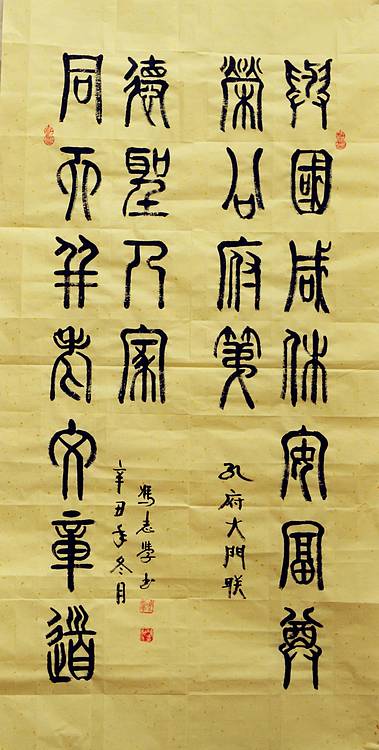 與國咸休安富尊
榮公府第
孔府大門联
同天并老文章道
德聖人家
辛丑年冬月
馮志學书